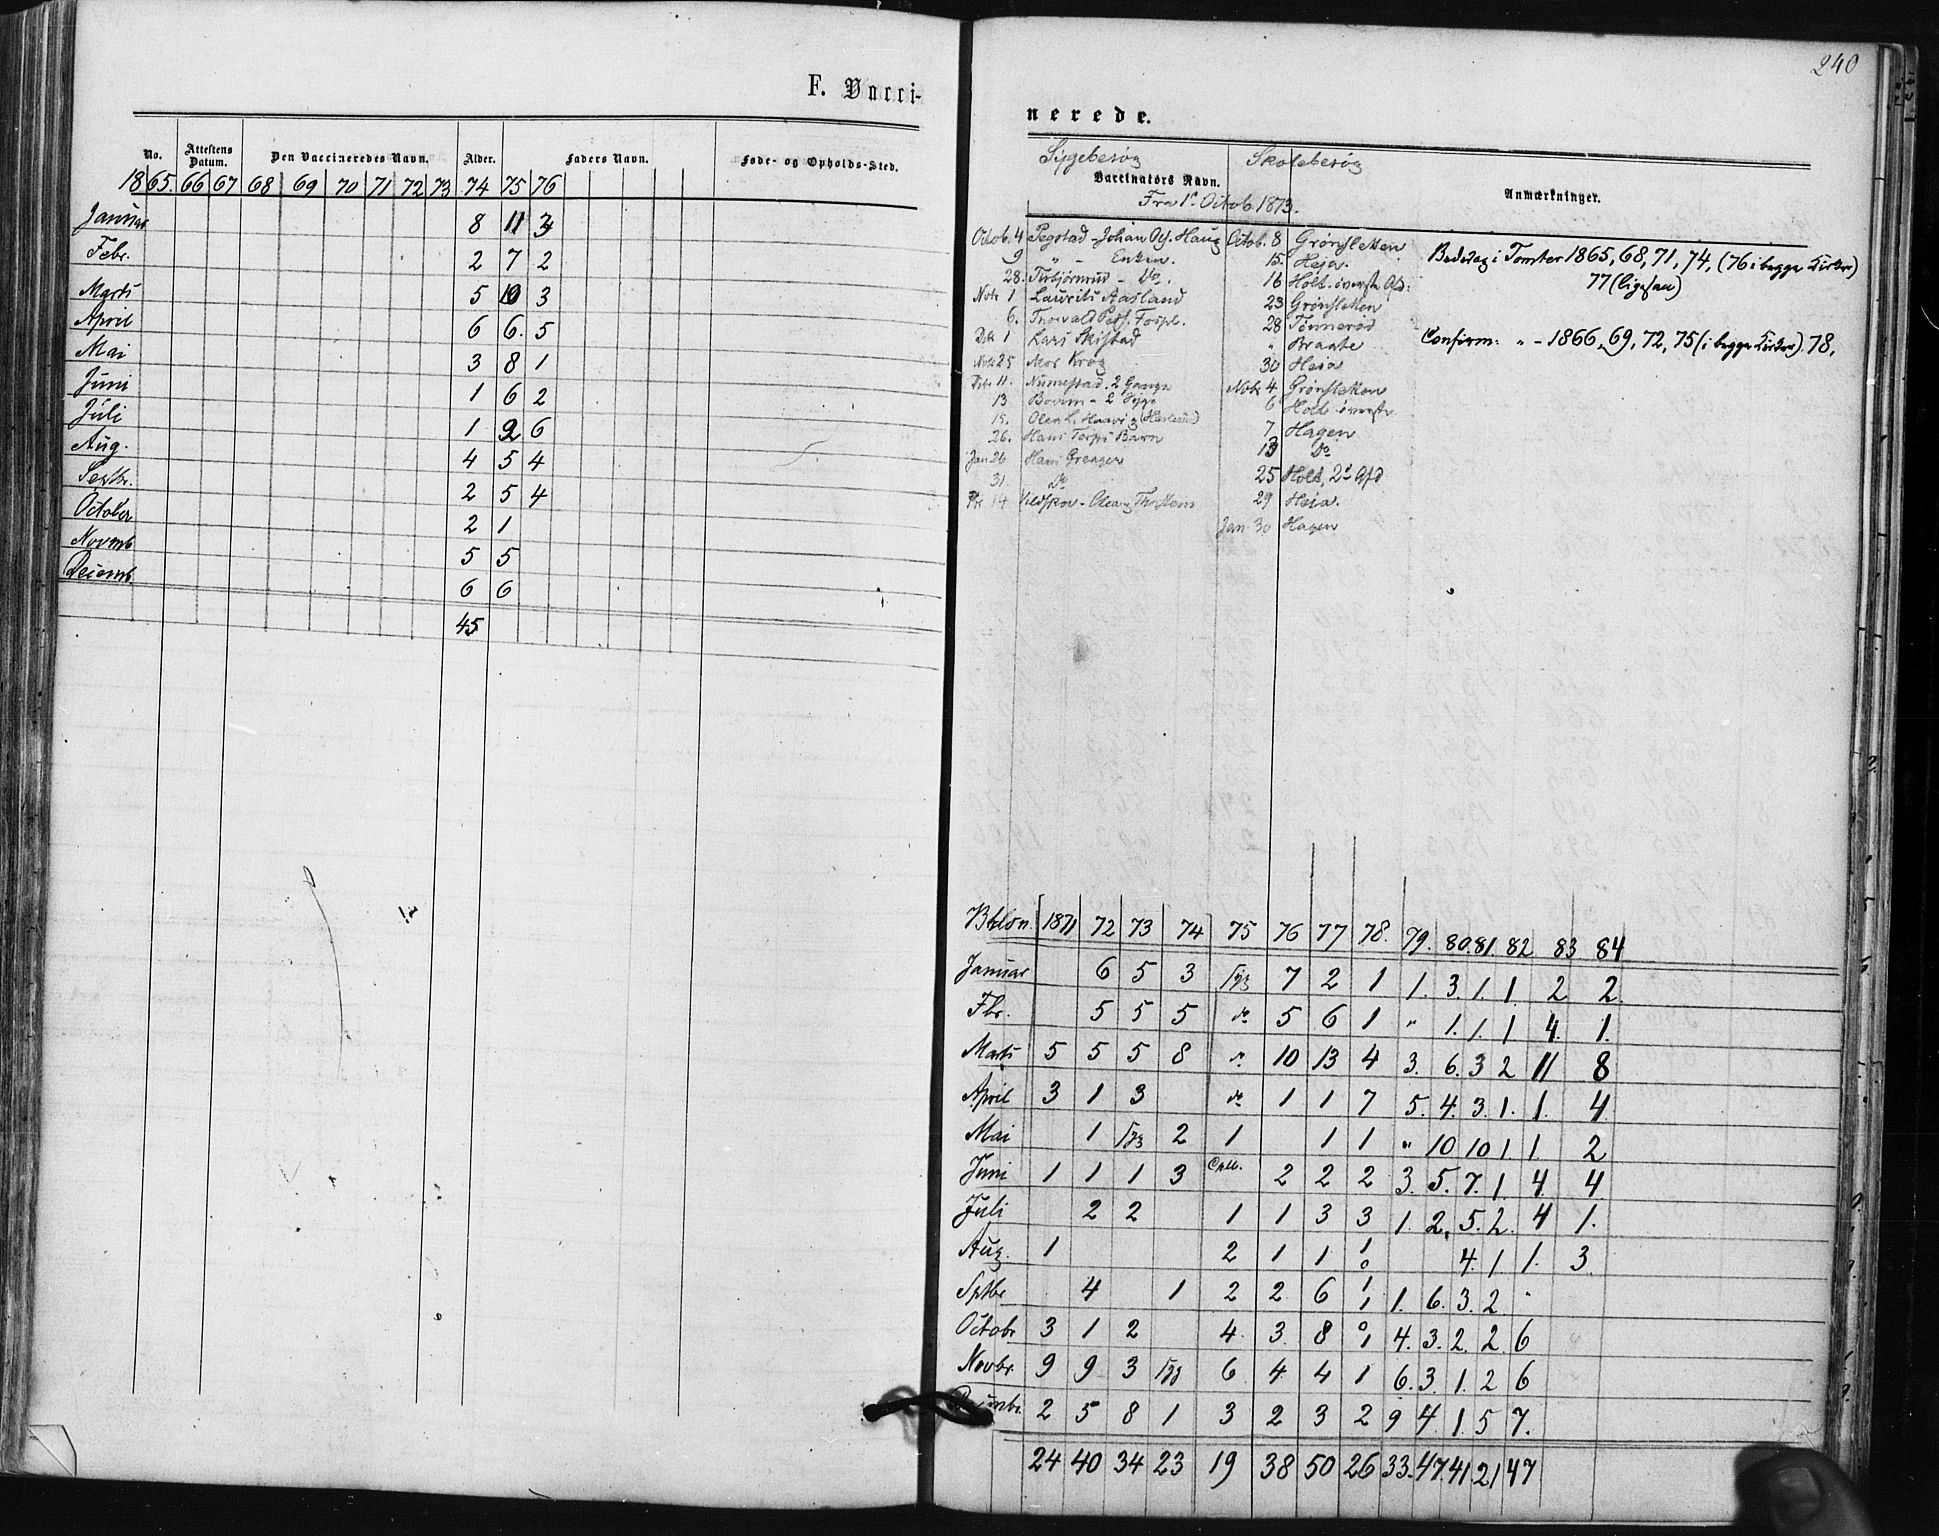 F. Vacci-
No. Attestens Datum. Den Vaccineredes Navn. Alder. Faders Navn. Føde- og Opholds-Sted.
1865. 66 67 68 69 70 71 72 73 74 75 76
Januar 8 11 3
Febr. 2 7 2
Marts 5 10 3
April 6 6. 5
Mai 3 8 1
Juni 1 6 2
Juli 1 2 6
Aug. 4 5 4
Septbr. 2 5 4
October 2 1
Novmb 5 5
Decemb. 6 6
45
240
nerede.
Sygebesøg Skolebesøg
Vaccinators Navn. Anmærkninger.
Fra 1 Octob. 1873.
Octob. 4 Pegstad - Johan Haug
9 " - Enken.
28. Torbjørnrud - Do.
Novbr 1 Laurits Aasland
6. Thorvald
1 Lars Skistad
25 Mos Krog
11. 2 Gange
13. Bovim - 2 Syge
19. Olea L. Haavi
26. Hans Torps Barn
Jan 26 Hans Grengen
31. Do
14 Vildskov - Olea
Octob. 8 Grønsletten
15. Heia.
16 Holt øverste Afd:
23 Grønsletten
28 Tønnerød
" Braate
30 Heia
Novbr 4 Grønsletten
6 Holt øverste
7 Hagen
13 Do
25 Holt, 2d Afd
29 Heia.
Jan. 30 Hagen
Bededag i Tomter 1865, 68, 71, 74, (76 i begge Kirker)
77 (ligesaa)
Confirm: " - 1866, 69, 72, 75 (i begge Kirker). 78,
1871 72 73 74 75 76 77 78. 79. 80. 81. 82 83 84
Januar 6 5 3 Syg 7 2 1 1. 3. 1. 1. 2 2.
Fbr. 5 5 5 do 5 6 1 " 1. 1. 1 4. 1.
Marts 5 5 5 8 do 10 13 4 3. 6. 3 2 11 8
April 3 1 3 do 1 1 7 5. 4. 3. 1. 1. 4.
Mai 1 Syg 2 1 1 1 " 10 10 1. 1. 2
Juni 1 1 1 3 2 2 2 3. 5. 7. 1. 4. 4.
Juli 2 2 1 1 3 3 1. 2. 5. 2. 4 1.
Aug. 1 2 1 1. 1 0 4. 1. 1. 3.
Sptbr 4 1 2 2 6 1 1 1. 6. 3. 2 "
Octobr 3 1 2 4. 3. 8 0 1 4. 3. 2. 2. 6
Novbr. 9 9 3 Syg 6. 4. 4 1 6. 3. 1. 2 6
Decembr. 2 5 8 1 3 2 3 2 9 4. 1. 5 7.
24 40 34 23 19 38 50 26 33. 47. 41. 21 47